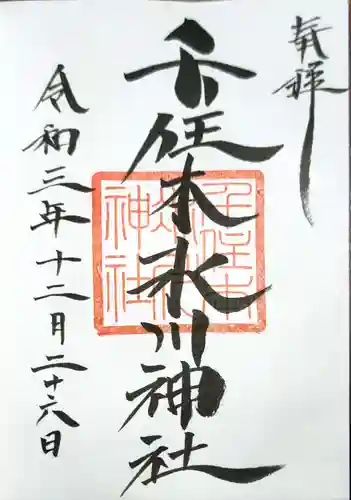 奉拝
千住本氷川神社
令和三年十二月二十六日
千住本氷川神社